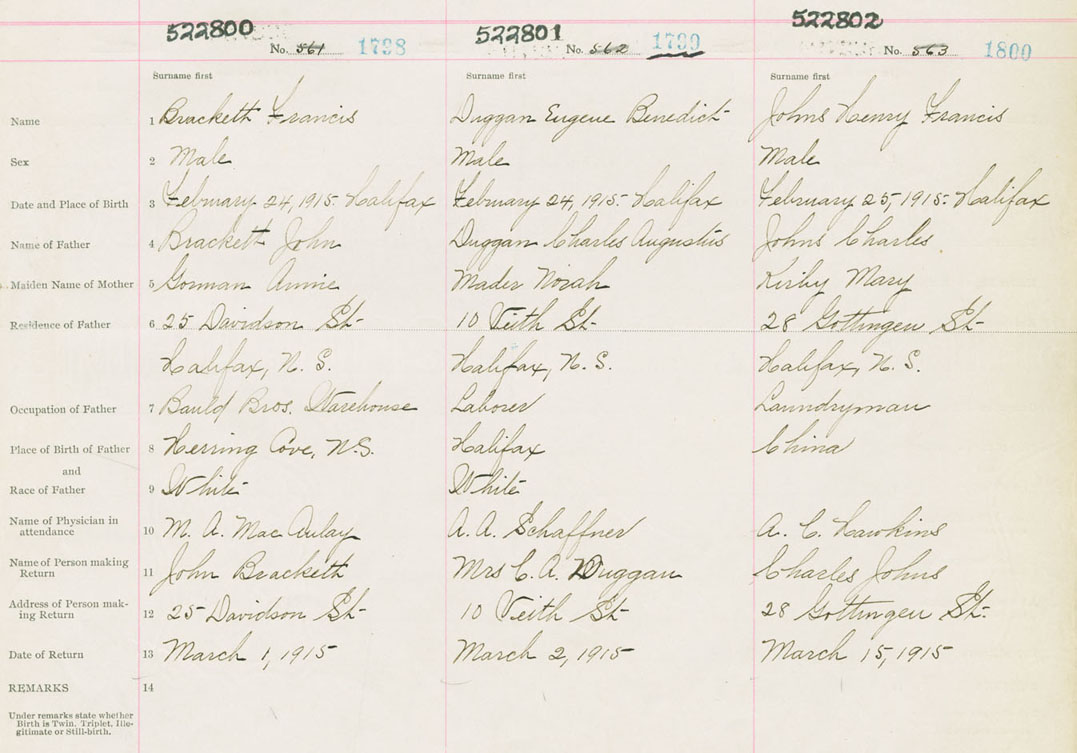 522800 522801 522802
No. 561 1798 No. 562 1799 No. 563 1800
Surname first Surname first Surname first
Name 1 Brackett Francis Duggan Eugene Benedict Johns Henry Francis
Sex 2 Male Male Male
Date and Place of Birth 3 February 24, 1915 - Halifax February 24, 1915 - Halifax February 25, 1915 - Halifax
Name of Father 4 Brackett John Duggan Charles Augustus Johns Charles
Maiden Name of Mother 5 Gorman Annie Mader Norah Kirby Mary
Residence of Father 6 25 Davidson St- 10 Veith St- 28 Gottingen St-
Halifax, N.S. Halifax, N.S. Halifax, N.S.
Occupation of Father 7 Bauld Bros. Warehouse Laborer Laundryman
Place of Birth of Father 8 Herring Cove, N.S. Halifax China
and
Race of Father 9 White White
Name of Physician in
attendance 10 M. A. MacAulay A. A. Schaffner A. C. Hawkins
Name of Person making
Return 11 John Brackett Mrs C. A. Duggan Charles Johns
Address of Person mak-
ing Return 12 25 Davidson St- 10 Veith St- 28 Gottingen St-
Date of Return 13 March 1, 1915 March 2, 1915 March 15, 1915
REMARKS 14
Under remarks state whether
Birth is Twin, Triplet, Ille-
gitimate or Still-birth.